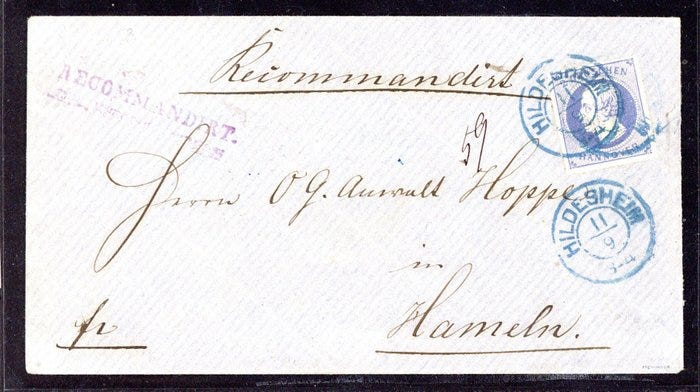 Recommandirt
RECOMMANDIRT.
HILDESHEIM
11
HANNOVER
59
Herrn OG. Anwalt Hoppe
HILDESHEIM
11/9
3-4
in
fr
Hameln.